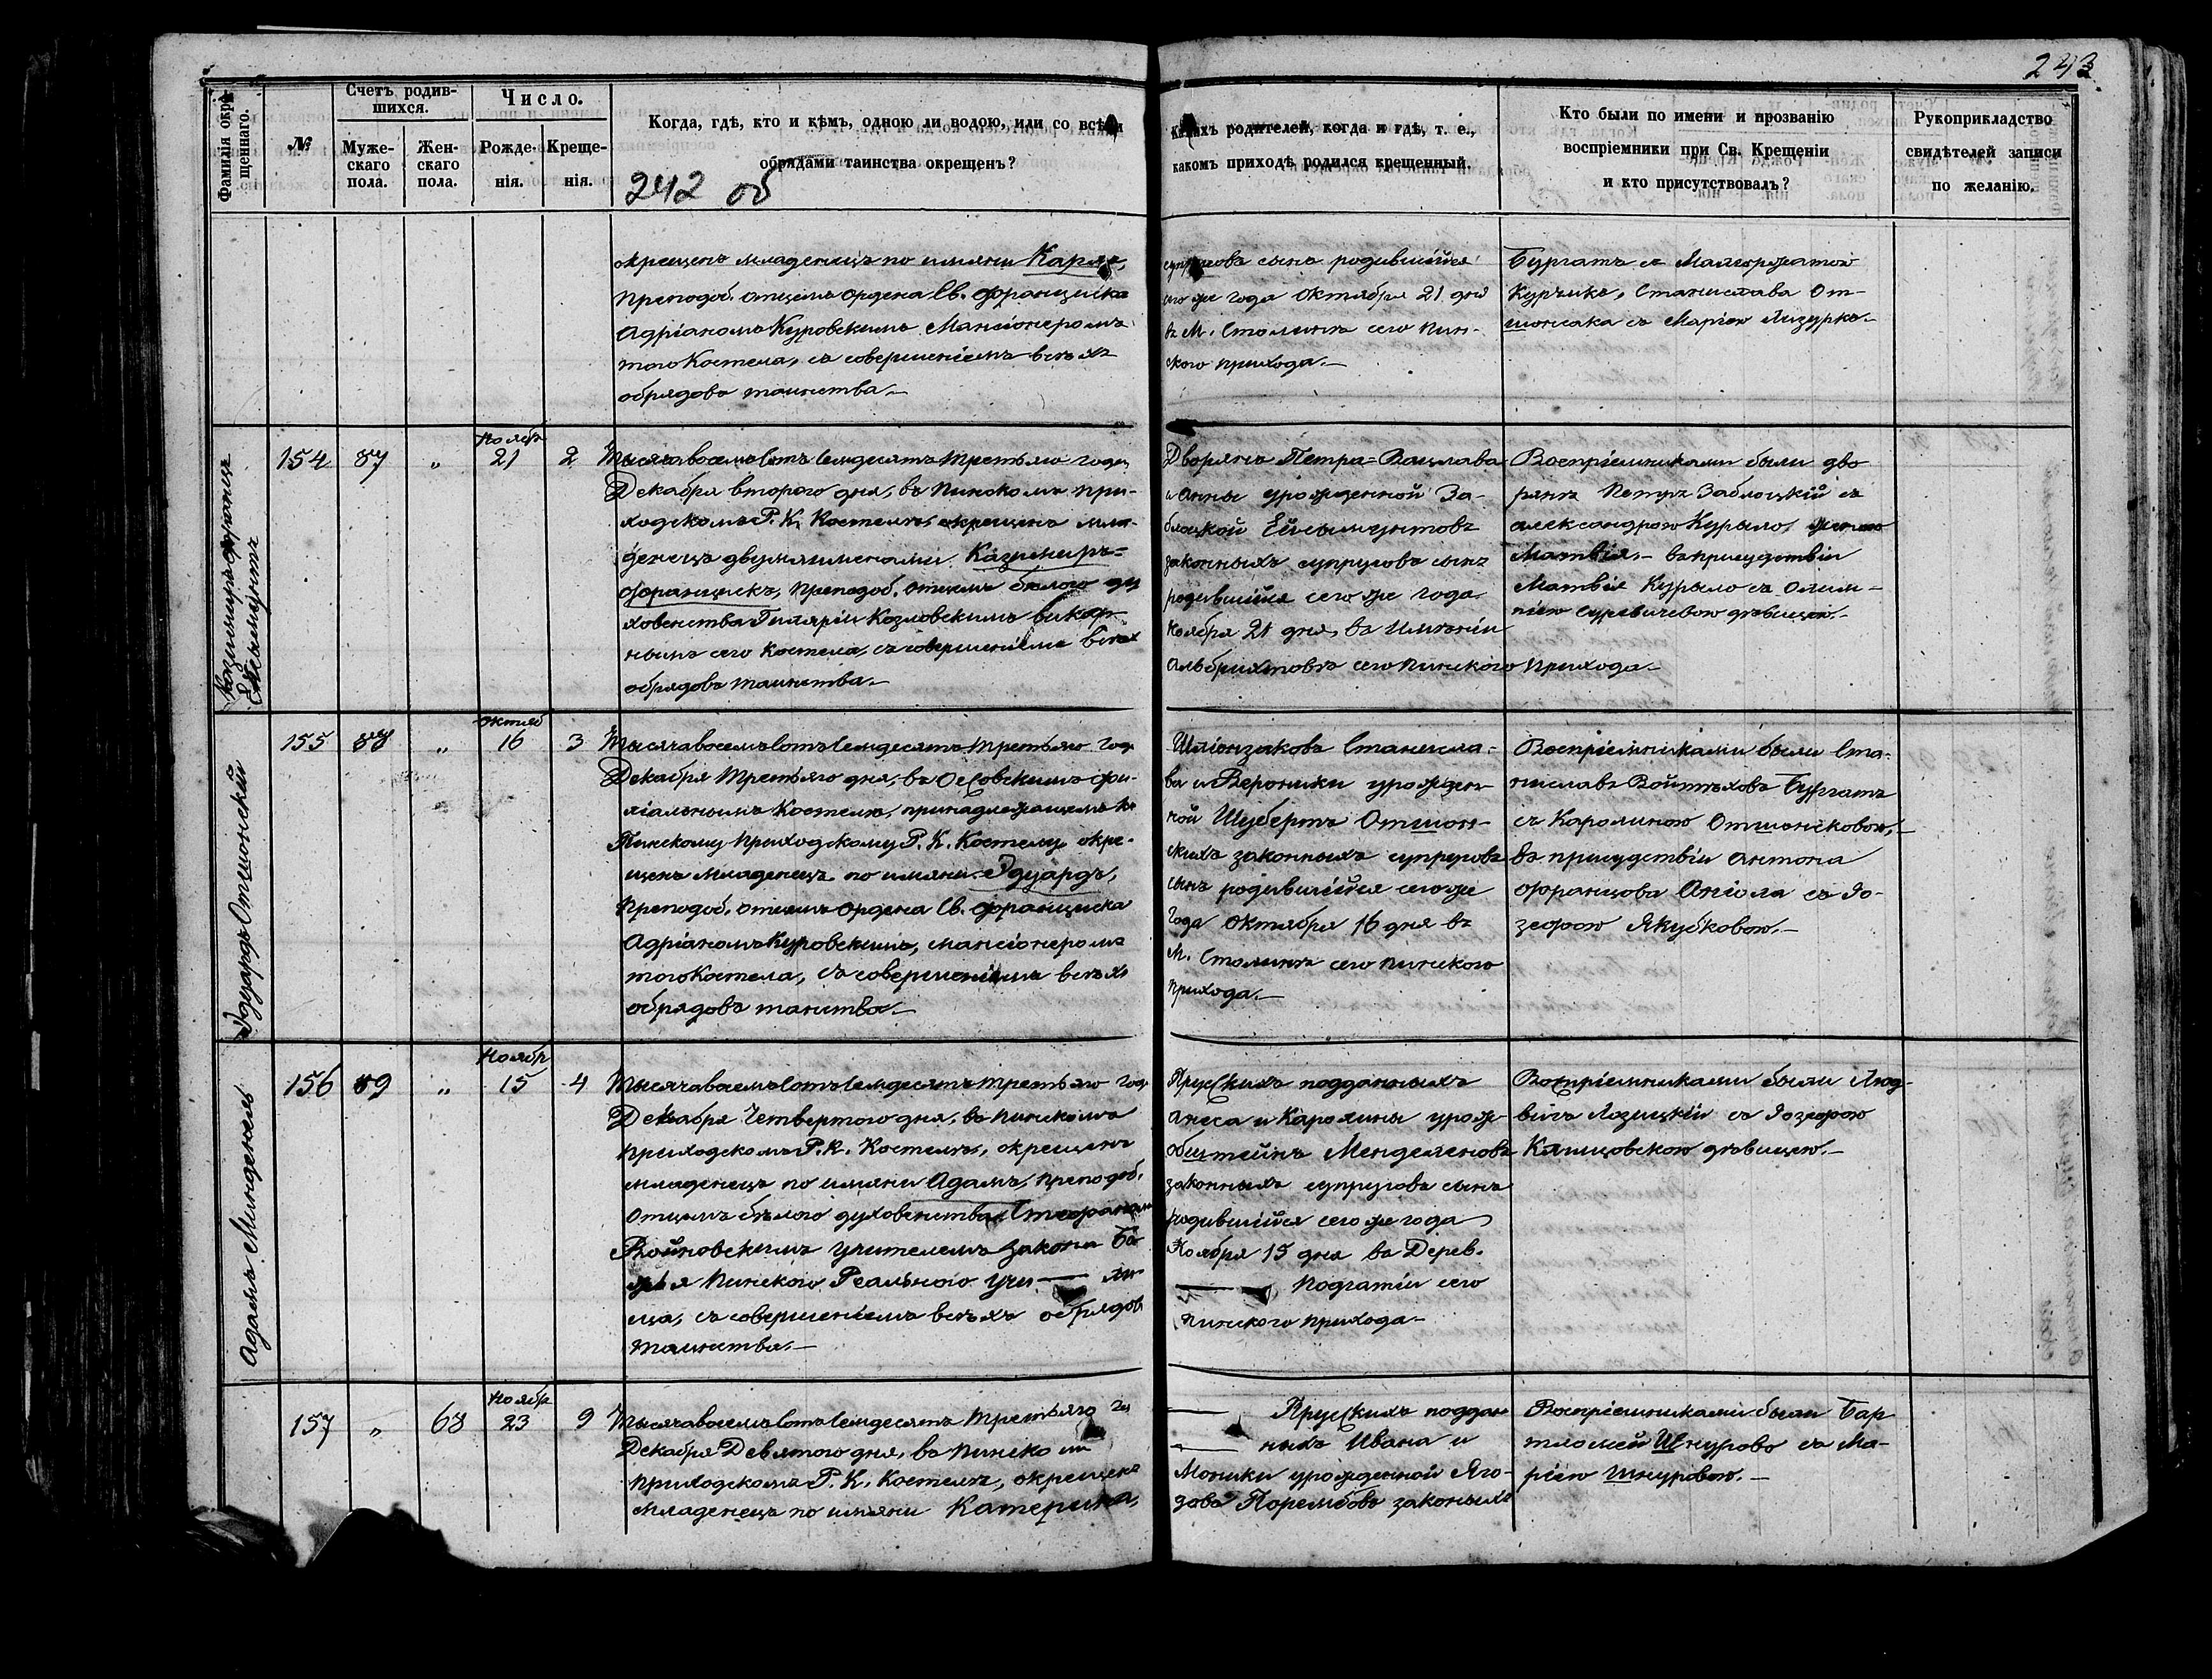 243
Фамилія окре-
щеннаго.
№
Счетъ родив-
шихся.
Муже-
скаго
пола.
Жен-
скаго
пола.
Число.
Рожде-
нія.
Креще-
нія.
Когда, гдѣ, кто и кѣмъ, одною ли водою, или со всѣми
обрядами таинства окрещенъ?
242 об
какихъ родителей, когда и гдѣ, т. е.,
какомъ приходѣ родился крещенный.
Кто были по имени и прозванію
воспріемники при Св. Крещеніи
и кто присутствовалъ?
Рукоприкладство
свидѣтелей записи
по желанію.
окрещенъ младенецъ по имяни Карлъ,
преподоб. отцемъ Ордена Св. Франциска
Адріаномъ Куровскимъ Мансіонеромъ
того Костела, съ совершеніемъ всѣхъ
обрядовъ таинства.—
супруговъ сынъ родившійся
сего же года Октября 21 дня
въ М. Столинѣ сего Пин-
скаго прихода.—
Бургатъ съ Малгоржатою
Курчикъ, Станислава От-
шонсака съ Маріею Мазурко.—
Казимиръ Францъ
Ейсымунтъ
154
87
"
Ноябр
21
2
Тысяча восемьсотъ семдесятъ третьяго года
Декабря втораго дня, въ Пинскомъ при-
ходскомъ Р. К. Костелѣ окрещенъ мла-
денецъ двумя именами Казимиръ=
Францискъ, преподоб. отцемъ бѣлаго ду
ховенства Гиляріи Козловскимъ викар-
нымъ сего Костела, съ совершеніемъ всѣхъ
обрядовъ таинства.—
Дворянъ Петра-Вацлава
и Анны урожденной За-
блоцкой Ейсымунтовъ
законныхъ супруговъ сынъ
родившійся сего же года
Ноября 21 дня, въ Имѣніи
Альбрихтовѣ сего Пинскаго прихода.—
Воспріемниками были дво
рянъ Петръ Заблоцкій съ
Александрою Курыло, женою
Матвія.— въ присудствіи
Матвія Курыло съ Олим-
піею Суревичевою дѣвицею.—
Эдуардъ Отшонскій
155
88
"
Октяб
16
3
Тысяча восемьсотъ семдесятъ третьяго год
Декабря третьяго дня, въ Осовскимъ фи-
ліальнымъ Костелѣ, принадлежащемъ къ
Пинскому приходскому Р. К. Костелу окре-
щенъ младенецъ по имяни Эдуардъ,
преподоб. отцемъ Ордена Св. Франциска
Адріаномъ Куровскимъ, мансіонеромъ
того Костела, съ совершеніемъ всѣхъ
обрядовъ таинства.—
Шліонзаковъ Станисла-
ва и Вероники урожден-
ной Шубертъ Отшон-
скихъ законныхъ супруговъ
сынъ родившійся сего же
года Октября 16 дня въ
М. Столинѣ сего Пинскаго
прихода.—
Воспріемниками были Ста-
ниславъ Войтѣховъ Бургатъ
съ Каролиною Отшонсковою,—
въ присудствіи Антона
Францова Аніола съ Іо-
зефою Якубковою.—
Адамъ Менделенъ
156
89
"
Ноябр
15
4
Тысяча восемьсотъ семдесятъ третьяго год
Декабря Четвертаго дня, въ Пинскомъ
приходскомъ Р. К. Костелѣ, окрещенъ
младенецъ по имяни Адамъ, преподоб.
отцемъ бѣлаго духовенства Стефаномъ
Войновскимъ учителемъ закона Бо
жія Пинскаго Реальнаго учи— ли
ща, съ совершеніемъ всѣхъ обрядовъ
таинства.—
Прусскихъ подданныхъ
Анса и Каролины урож
Обштейнъ Менделеновъ
законныхъ супруговъ сынъ
родившійся сего же года
Ноября 15 дня въ Дерев.
— Погатіи сего
Пинскаго прихода.—
Воспріемниками были Люд-
вигъ Лозицкій съ Іозефою
Климовскою дѣвицею.—
157
"
68
Ноябр
23
9
Тысяча восемьсотъ семдесятъ третьяго
Декабря Девятаго дня, въ Пинском
приходскомъ Р. К. Костелѣ, окрещена
младенецъ по имяни Катерина,
— Прусскихъ поддан
— ныхъ Ивана и
Моники урожденной Яго-
дова Порембовъ законныхъ
Воспріемниками были Бар
тломей Шнурово съ Ма-
ріею Шнуровою.—